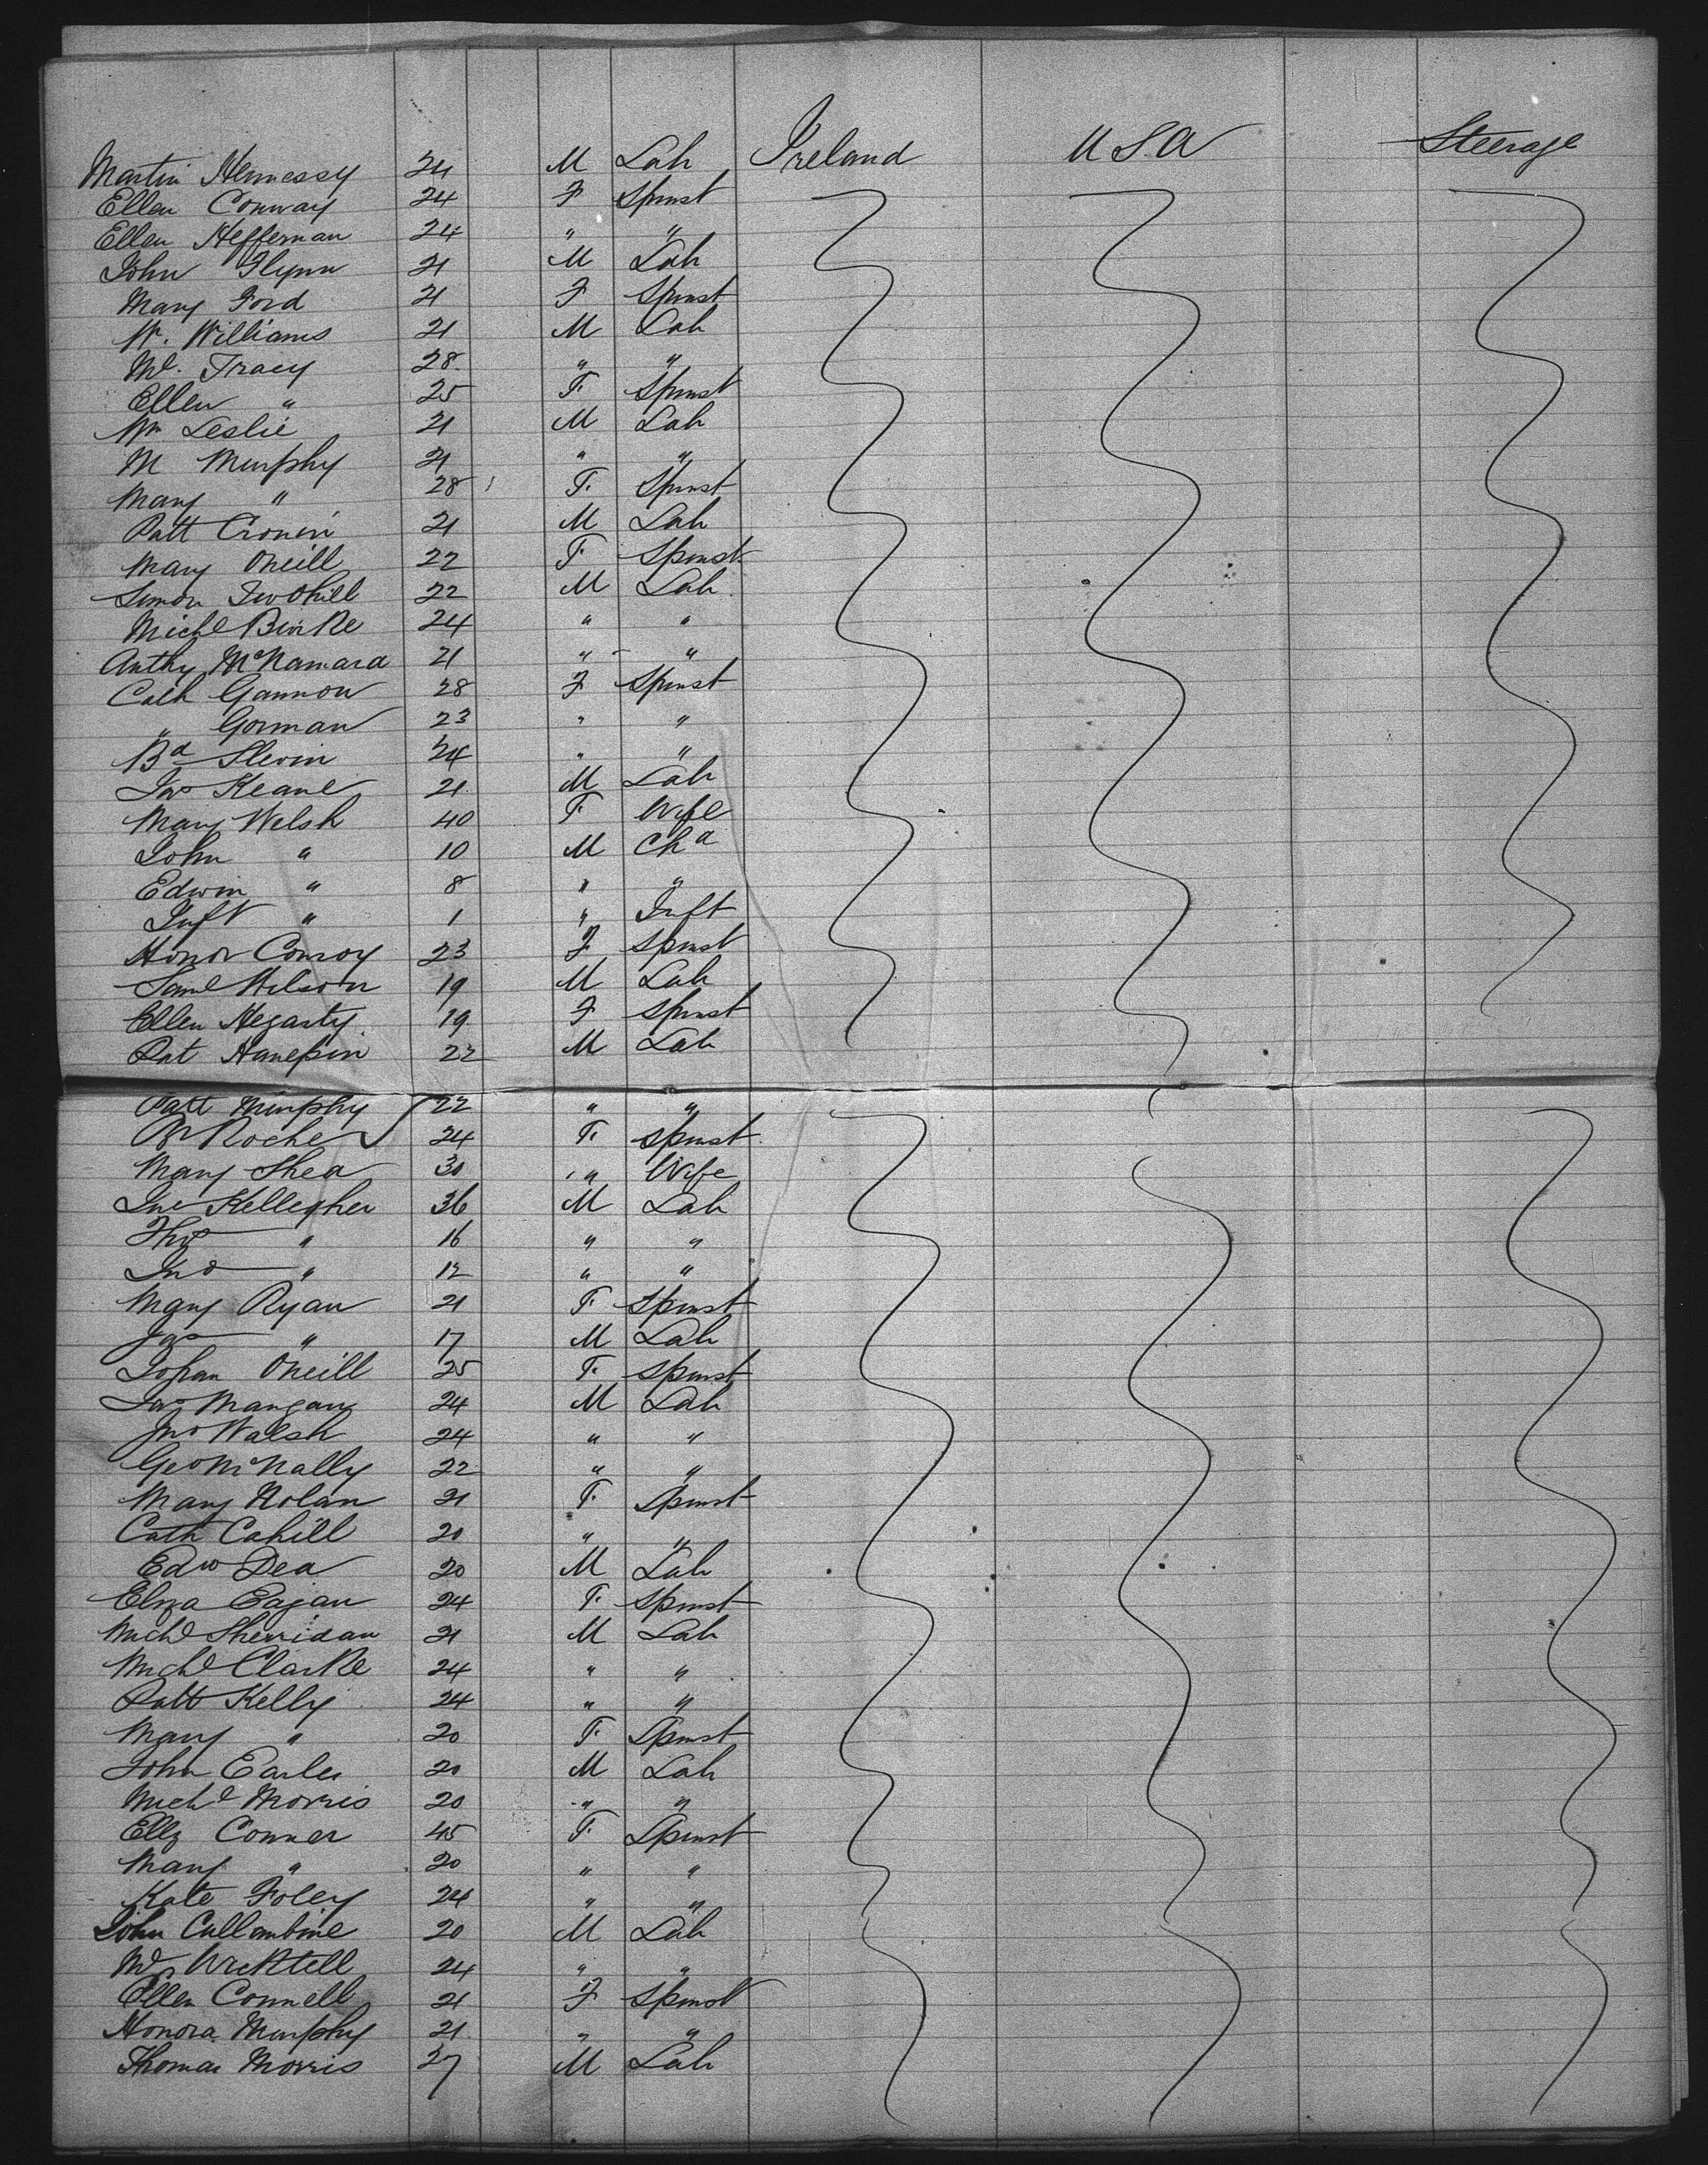 Martin Hennessy 24 M Lab Ireland U S A Steerage
Ellen Conway 24 F Spinst
Ellen Heffernan 24 " "
John Flynn 21 M Lab
Mary Ford 21 F Spinst
W. Williams 21 M Lab
Ml. Tracy 28 " "
Ellen " 25 F. Spinst
Wm Leslie 21 M Lab
M Murphy 21 " "
Mary " 28 F. Spinst
Patt Cronin 21 M Lab
Mary Oneill 22 F. Spinst
Simon Twohill 22 M Lab
Michl Burke 24 " "
Anthy McNamara 21 " "
Cath Gannon 28 F Spinst
" Gorman 23 " "
Bd Slevin 24 " "
Jas Keane 21 M Lab
Mary Welsh 40 F. Wife
John " 10 M Chd
Edwin " 8 " "
Inft " 1 " Inft
Honor Conroy 23 F Spinst
Saml Wilson 19 M Lab
Ellen Hegarty 19 F Spinst
Pat 22 M Lab
Patt Murphy 22 " "
Roche 24 F. Spinst
Mary Shea 30 " Wife
Kellegher 36 M Lab
Thos " 16 " "
Jno " 12 " "
Mary Ryan 21 F. Spinst
Jas " 17 M Lab
Johan Oneill 25 F. Spinst
Jas Mangan 24 M Lab
Jno Walsh 24 " "
Geo McNally 22 " "
Mary Nolan 21 F. Spinst
Cath Cahill 20 " "
Edw Dea 20 M Lab
Eliza Eagan 24 F. Spinst
Michl Sherridan 21 M Lab
Michl Clarke 24 " "
Patt Kelly 24 " "
Mary " 20 F. Spinst
John Earles 20 M Lab
Michl Morris 20 " "
Ellz Conner 45 F. Spinst
Mary " 20 " "
Kate Foley 24 " "
John Cullambine 20 M Lab
24 " "
Ellen Connell 21 F Spinst
Honora Murphy 21 " "
Thomas Morris 27 M Lab